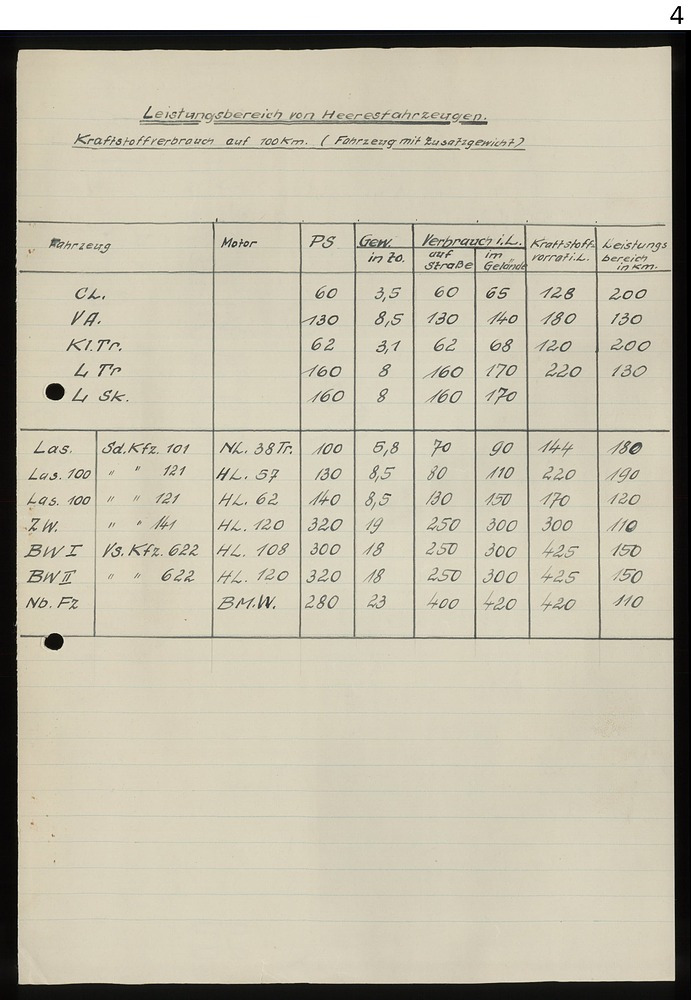 4
Leistungsbereich von Heeresfahrzeugen.
Kraftstoffverbrauch auf 100 Km. ( Fahrzeug mit Zusatzgewicht )
Fahrzeug Motor PS Gew. in to. Verbrauch i. L. auf Straße im Gelände Kraftstoff- vorrat i. L. Leistungs bereich in Km.
CL. 60 3,5 60 65 128 200
VA. 130 8,5 130 140 180 130
Kl. Tr. 62 3,1 62 68 120 200
L Tr 160 8 160 170 220 130
L Sk. 160 8 160 170
Las. Sd. Kfz. 101 NL. 38 Tr. 100 5,8 70 90 144 180
Las. 100 " " 121 HL. 57 130 8,5 80 110 220 190
Las. 100 " " 121 HL. 62 140 8,5 130 150 170 120
ZW. " " 141 HL. 120 320 19 250 300 300 110
BW I Vs. Kfz. 622 HL. 108 300 18 250 300 425 150
BW II " " 622 HL. 120 320 18 250 300 425 150
Nb. Fz BM.W. 280 23 400 420 420 110